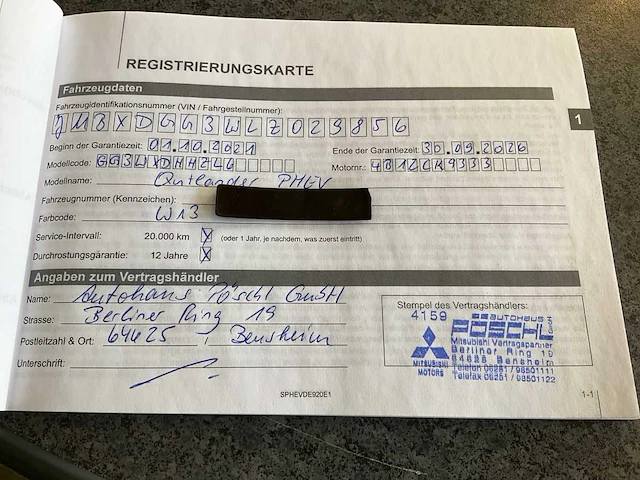 REGISTRIERUNGSKARTE
Fahrzeugdaten
1
Fahrzeugidentifikationsnummer (VIN / Fahrgestellnummer):
JMBXDGG3WLZ029856
Beginn der Garantiezeit: 01.10.2021 Ende der Garantiezeit: 30.09.2026
Modellcode: GG3WXDHHZL6 Motornr.: 4B12CK9333
Modellname: Outlander PHEV
Fahrzeugnummer (Kennzeichen):
Farbcode: W13
Service-Intervall: 20.000 km X (oder 1 Jahr, je nachdem, was zuerst eintritt)
Durchrostungsgarantie: 12 Jahre X
Angaben zum Vertragshändler
Name: Autohaus Pöschl GmbH
Strasse: Berliner Ring 19
Postleitzahl & Ort: 64625 / Bensheim
Unterschrift:
Stempel des Vertragshändlers:
4159 AUTOHAUS
PÖSCHL GmbH
Mitsubishi Vertragspartner
Berliner Ring 19
64625 Bensheim
Telefon 06251 / 98501111
Telefax 06251 / 98501122
MITSUBISHI
MOTORS
SPHEVDE920E1
1-1